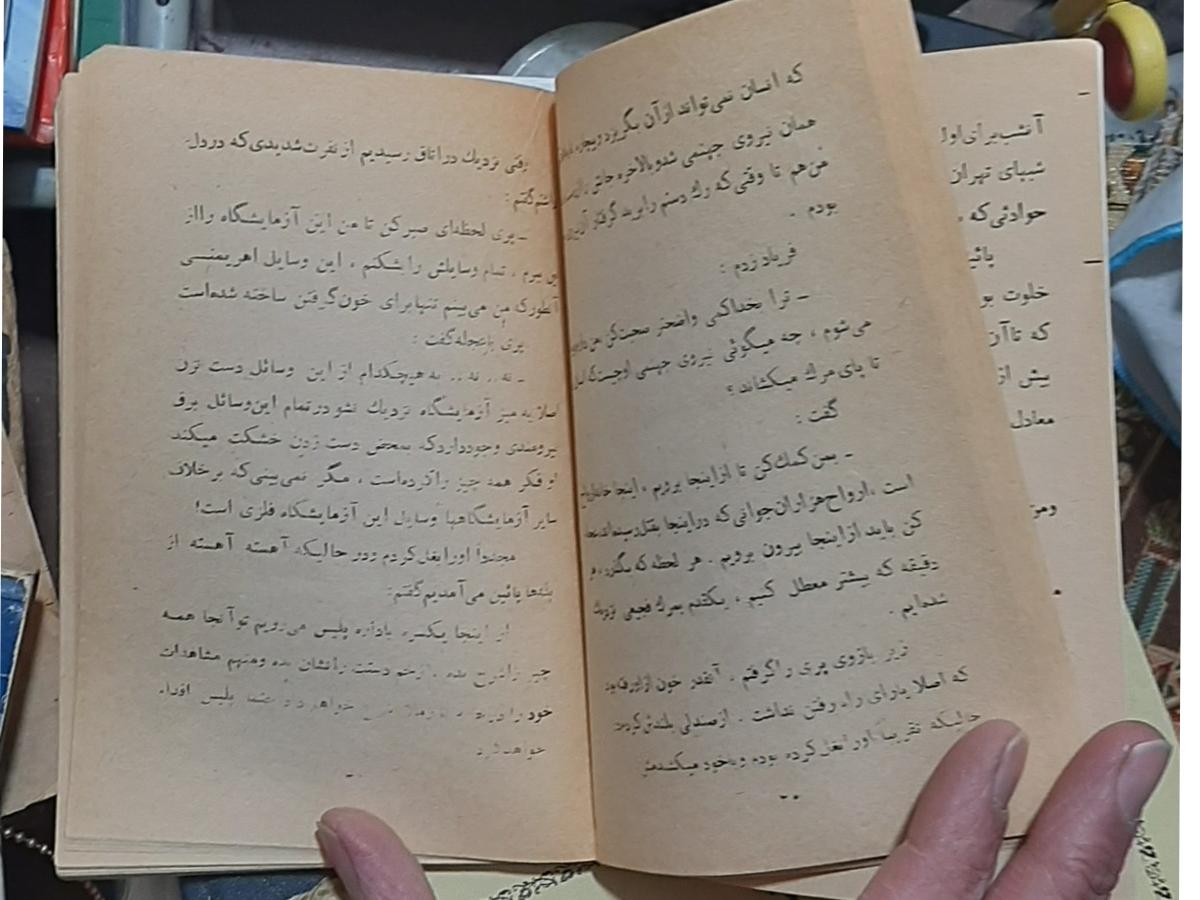 که انسان نمی‌تواند از آن بگریزد و بیچاره
همان نیروی جهنمی شد و بالاخره جانش
من هم تا وقتی که رگ دستم را برید گرفتار آن
بودم .
فریاد زدم :
ـ ترا بخدا کمی واضحتر صحبت کن من دارم
می‌شوم ، چه میگوئی نیروی جهنمی او چیست که انسان
تا پای مرگ میکشاند ؟
گفت :
ـ بمن کمک کن تا از اینجا برویم ، اینجا
است ، ارواح هزاران جوانی که در اینجا بقتل رسیده‌اند
کن باید از اینجا بیرون برویم . هر لحظه که بگذرد و
دقیقه که بیشتر معطل کنیم ، یکقدم بمرگ فجیعی نزدیک
شده‌ایم .
زیر بازوی پری را گرفتم . آنقدر خون از او رفته بود
که اصلا یارای راه رفتن نداشت . از صندلی بلندش کردم
حالیکه تقریباً او را بغل کرده بودم و با خود میکشیدمش
وقتی نزدیک در اتاق رسیدیم از نفرت شدیدی که در دل
داشتم گفتم :
ـ پری لحظه‌ای صبر کن تا من این آزمایشگاه را از
بین ببرم ، تمام وسایلش را بشکنم ، این وسایل اهریمنی
آنطور که من می‌بینم تنها برای خون گرفتن ساخته شده‌است
پری با عجله گفت :
ـ نه .. نه .. به هیچکدام از این وسائل دست نزن
اصلا به میز آزمایشگاه نزدیک نشو در تمام این وسائل برق
نیرومندی وجود دارد که بمحض دست زدن خشکت میکند
او فکر همه چیز را کرده‌است ، مگر نمی‌بینی که برخلاف
سایر آزمایشگاهها وسایل این آزمایشگاه فلزی است!
مجدداً او را بغل کردم و در حالیکه آهسته آهسته از
پله‌ها پائین می‌آمدیم گفتم:
از اینجا یکسره باداره پلیس می‌رویم تو آنجا همه
چیز را شرح بده . زخم دستت را نشان بده و منهم مشاهدات
خود را خواهم داد پلیس
خواهد کرد
آنشب برای اول
شبهای تهران
حوادثی که
خلوت بو
که تا آن
بیش از
معادل